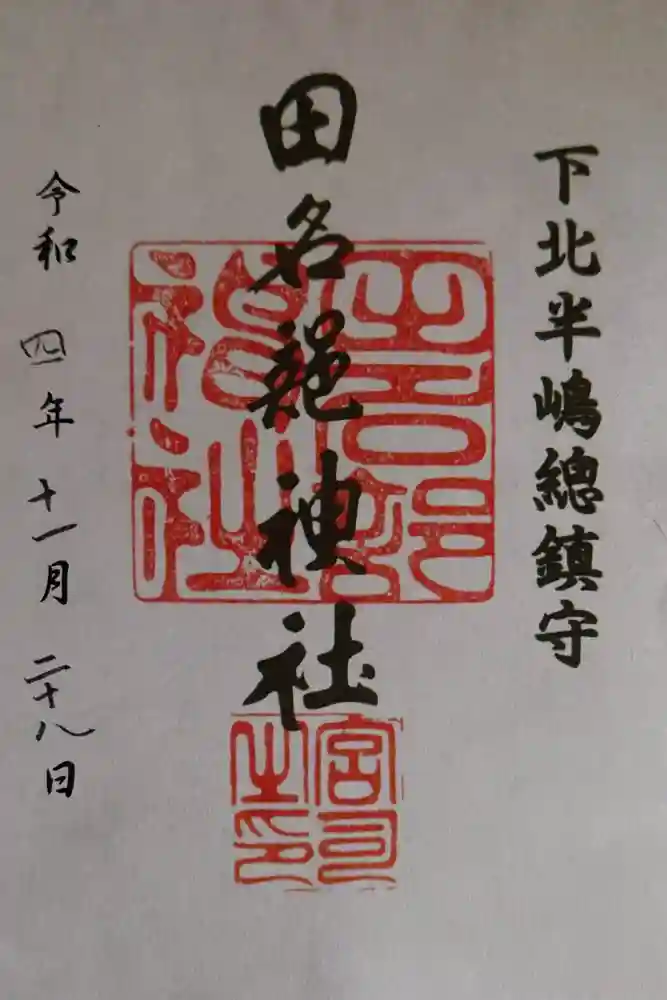 下北半嶋總鎮守
田名部神社
宮司之印
令和 四年 十一月 二十八日